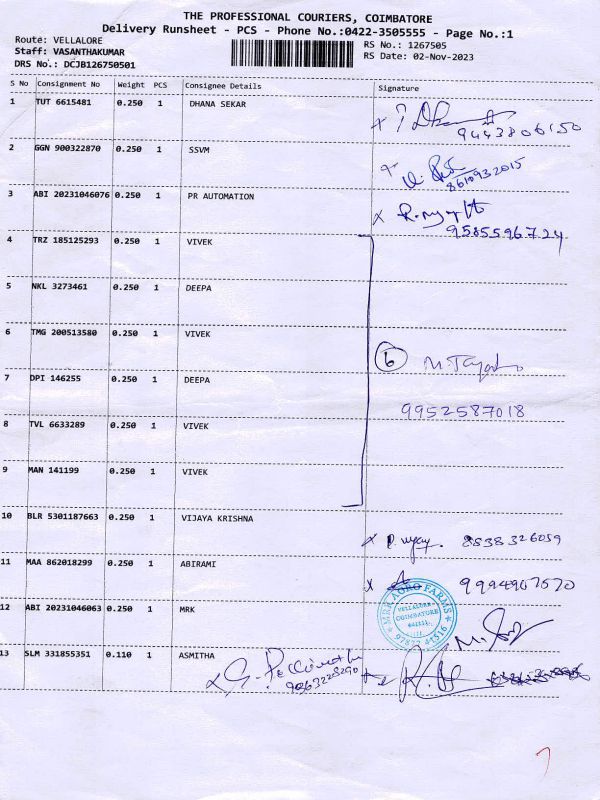 THE PROFESSIONAL COURIERS, COIMBATORE
Delivery Runsheet - PCS - Phone No.:0422-3505555 - Page No.:1
Route: VELLALORE
RS No.: 1267505
Staff: VASANTHAKUMAR
RS Date: 02-Nov-2023
DRS No.: DCJB126750501
S No Consignment No Weight PCS Consignee Details Signature
1 TUT 6615481 0.250 1 DHANA SEKAR
9443806150
2 GGN 900322870 0.250 1 SSVM
8610932015
3 ABI 20231046076 0.250 1 PR AUTOMATION
9585596724
4 TRZ 185125293 0.250 1 VIVEK
5 NKL 3273461 0.250 1 DEEPA
6 TMG 200513580 0.250 1 VIVEK
6
7 DPI 146255 0.250 1 DEEPA
9952587018
8 TVL 6633289 0.250 1 VIVEK
9 MAN 141199 0.250 1 VIVEK
10 BLR 5301187663 0.250 1 VIJAYA KRISHNA
8838326059
11 MAA 862018299 0.250 1 ABIRAMI
9994907570
12 ABI 20231046063 0.250 1 MRK
MRK AGRO FARMS
VELLALORE
COIMBATORE
97877 41516
13 SLM 331855351 0.110 1 ASMITHA